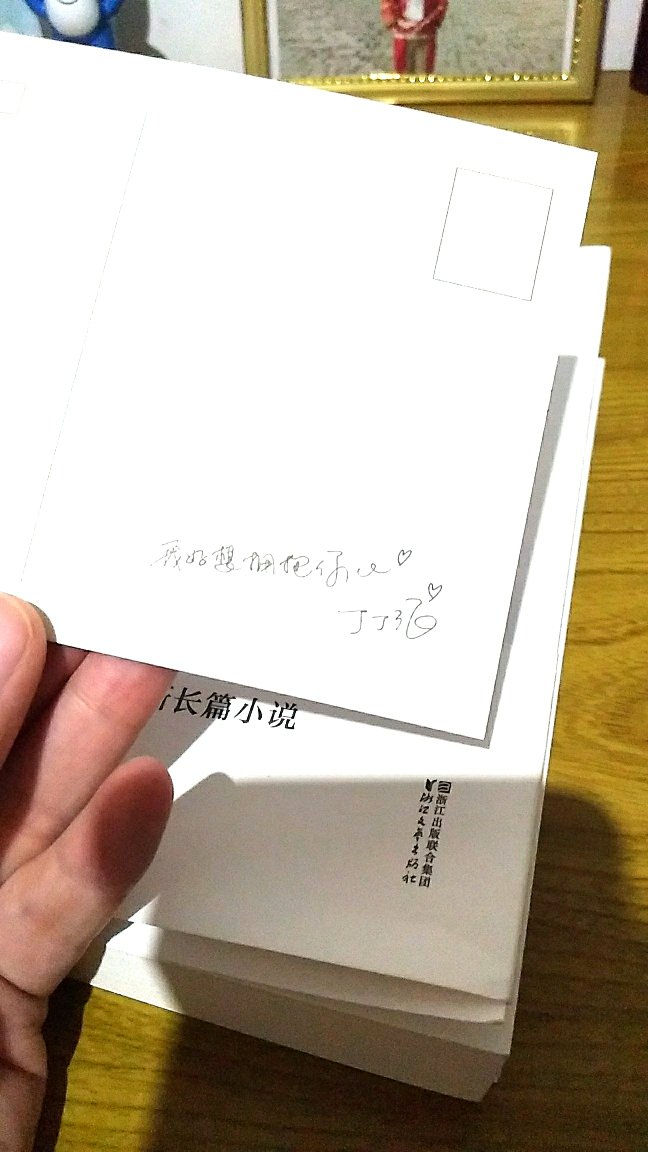 我好想拥抱你心♡
丁丁张♡
长篇小说
浙江出版联合集团
浙江文艺出版社